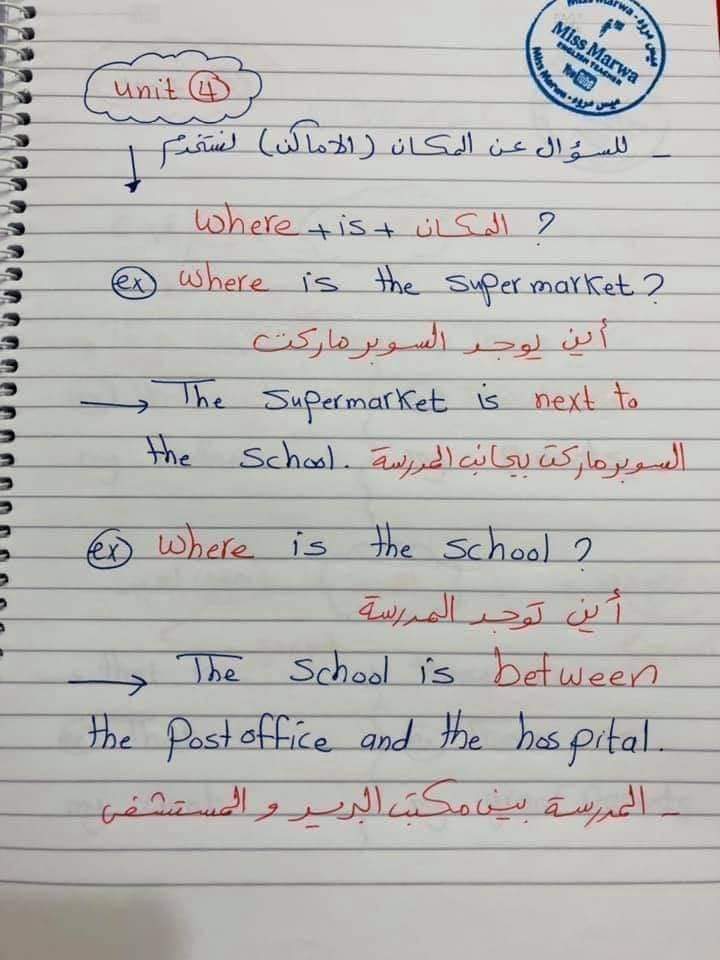 Miss Marwa - ميس مروه
Miss Marwa
ENGLISH TEACHER
YouTube
Miss Marwa - ميس مروه
unit 4
- للسؤال عن المكان (الاماكن) نستخدم
where + is + المكان ?
ex where is the supermarket?
أين يوجد السوبر ماركت
→ The supermarket is next to
the school. السوبر ماركت بجانب المدرسة
ex where is the school ?
أين توجد المدرسة
→ The school is between
the Post office and the hospital.
- المدرسة بين مكتب البريد و المستشفى